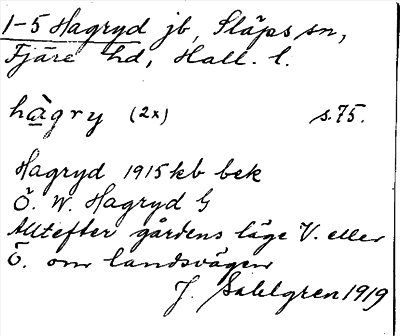 1-5 Hagryd jb, Släps sn,
Fjäre hd, Hall. l.
hàgry (2x) s. 75.
Hagryd 1915 kb bek
Ö. W. Hagryd G
Alltefter gårdens läge V. eller
Ö. om landsvägen
J. Sahlgren 1919